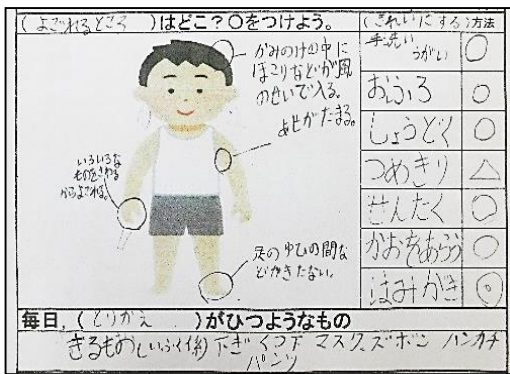 (よごれるところ)はどこ?○をつけよう。
かみのけの中に
ほこりなどが風
のせいで入る。
あせがたまる。
いろいろな
ものをさわる
からよごれる。
足のゆびの間な
どがきたない。
(きれいにする)方法
手洗い
うがい ○
おふろ ○
しょうどく ○
つめきり △
せんたく ○
かおをあらう ○
はみがき ◎
毎日,(とりかえ)がひつようなもの
きるもの 下ぎ くつ下 マスク ズボン ハンカチ
パンツ